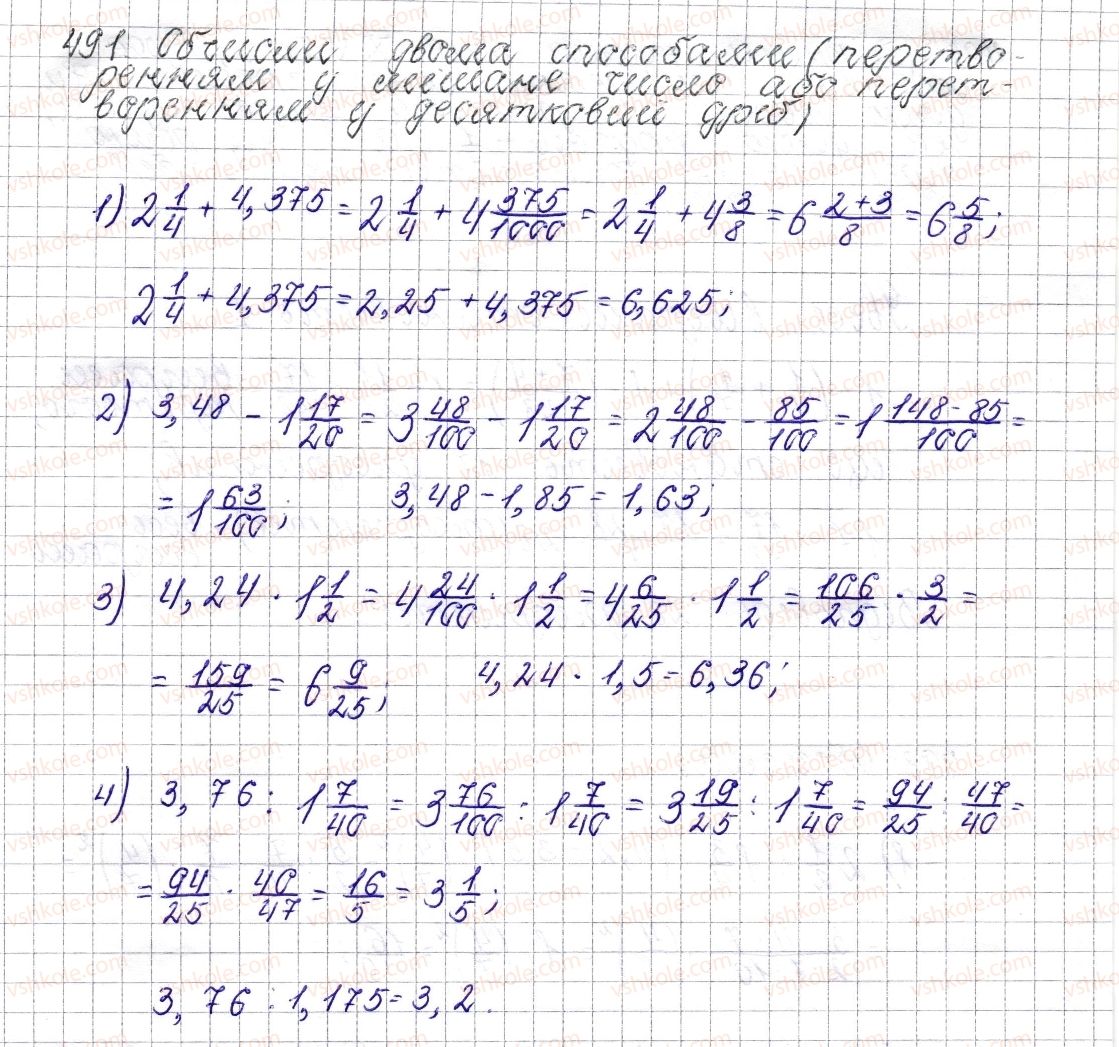 491 Обчисли двома способами (перетво-
ренням у мішане число або перет-
воренням у десятковий дріб)
1) 2 1/4 + 4,375 = 2 1/4 + 4 375/1000 = 2 1/4 + 4 3/8 = 6 (2+3)/8 = 6 5/8;
2 1/4 + 4,375 = 2,25 + 4,375 = 6,625;
2) 3,48 - 1 17/20 = 3 48/100 - 1 17/20 = 2 48/100 - 85/100 = 1 (148-85)/100 =
= 1 63/100; 3,48 - 1,85 = 1,63;
3) 4,24 · 1 1/2 = 4 24/100 · 1 1/2 = 4 6/25 · 1 1/2 = 106/25 · 3/2 =
= 159/25 = 6 9/25; 4,24 · 1,5 = 6,36;
4) 3,76 : 1 7/40 = 3 76/100 : 1 7/40 = 3 19/25 : 1 7/40 = 94/25 : 47/40 =
= 94/25 · 40/47 = 16/5 = 3 1/5;
3,76 : 1,175 = 3,2.